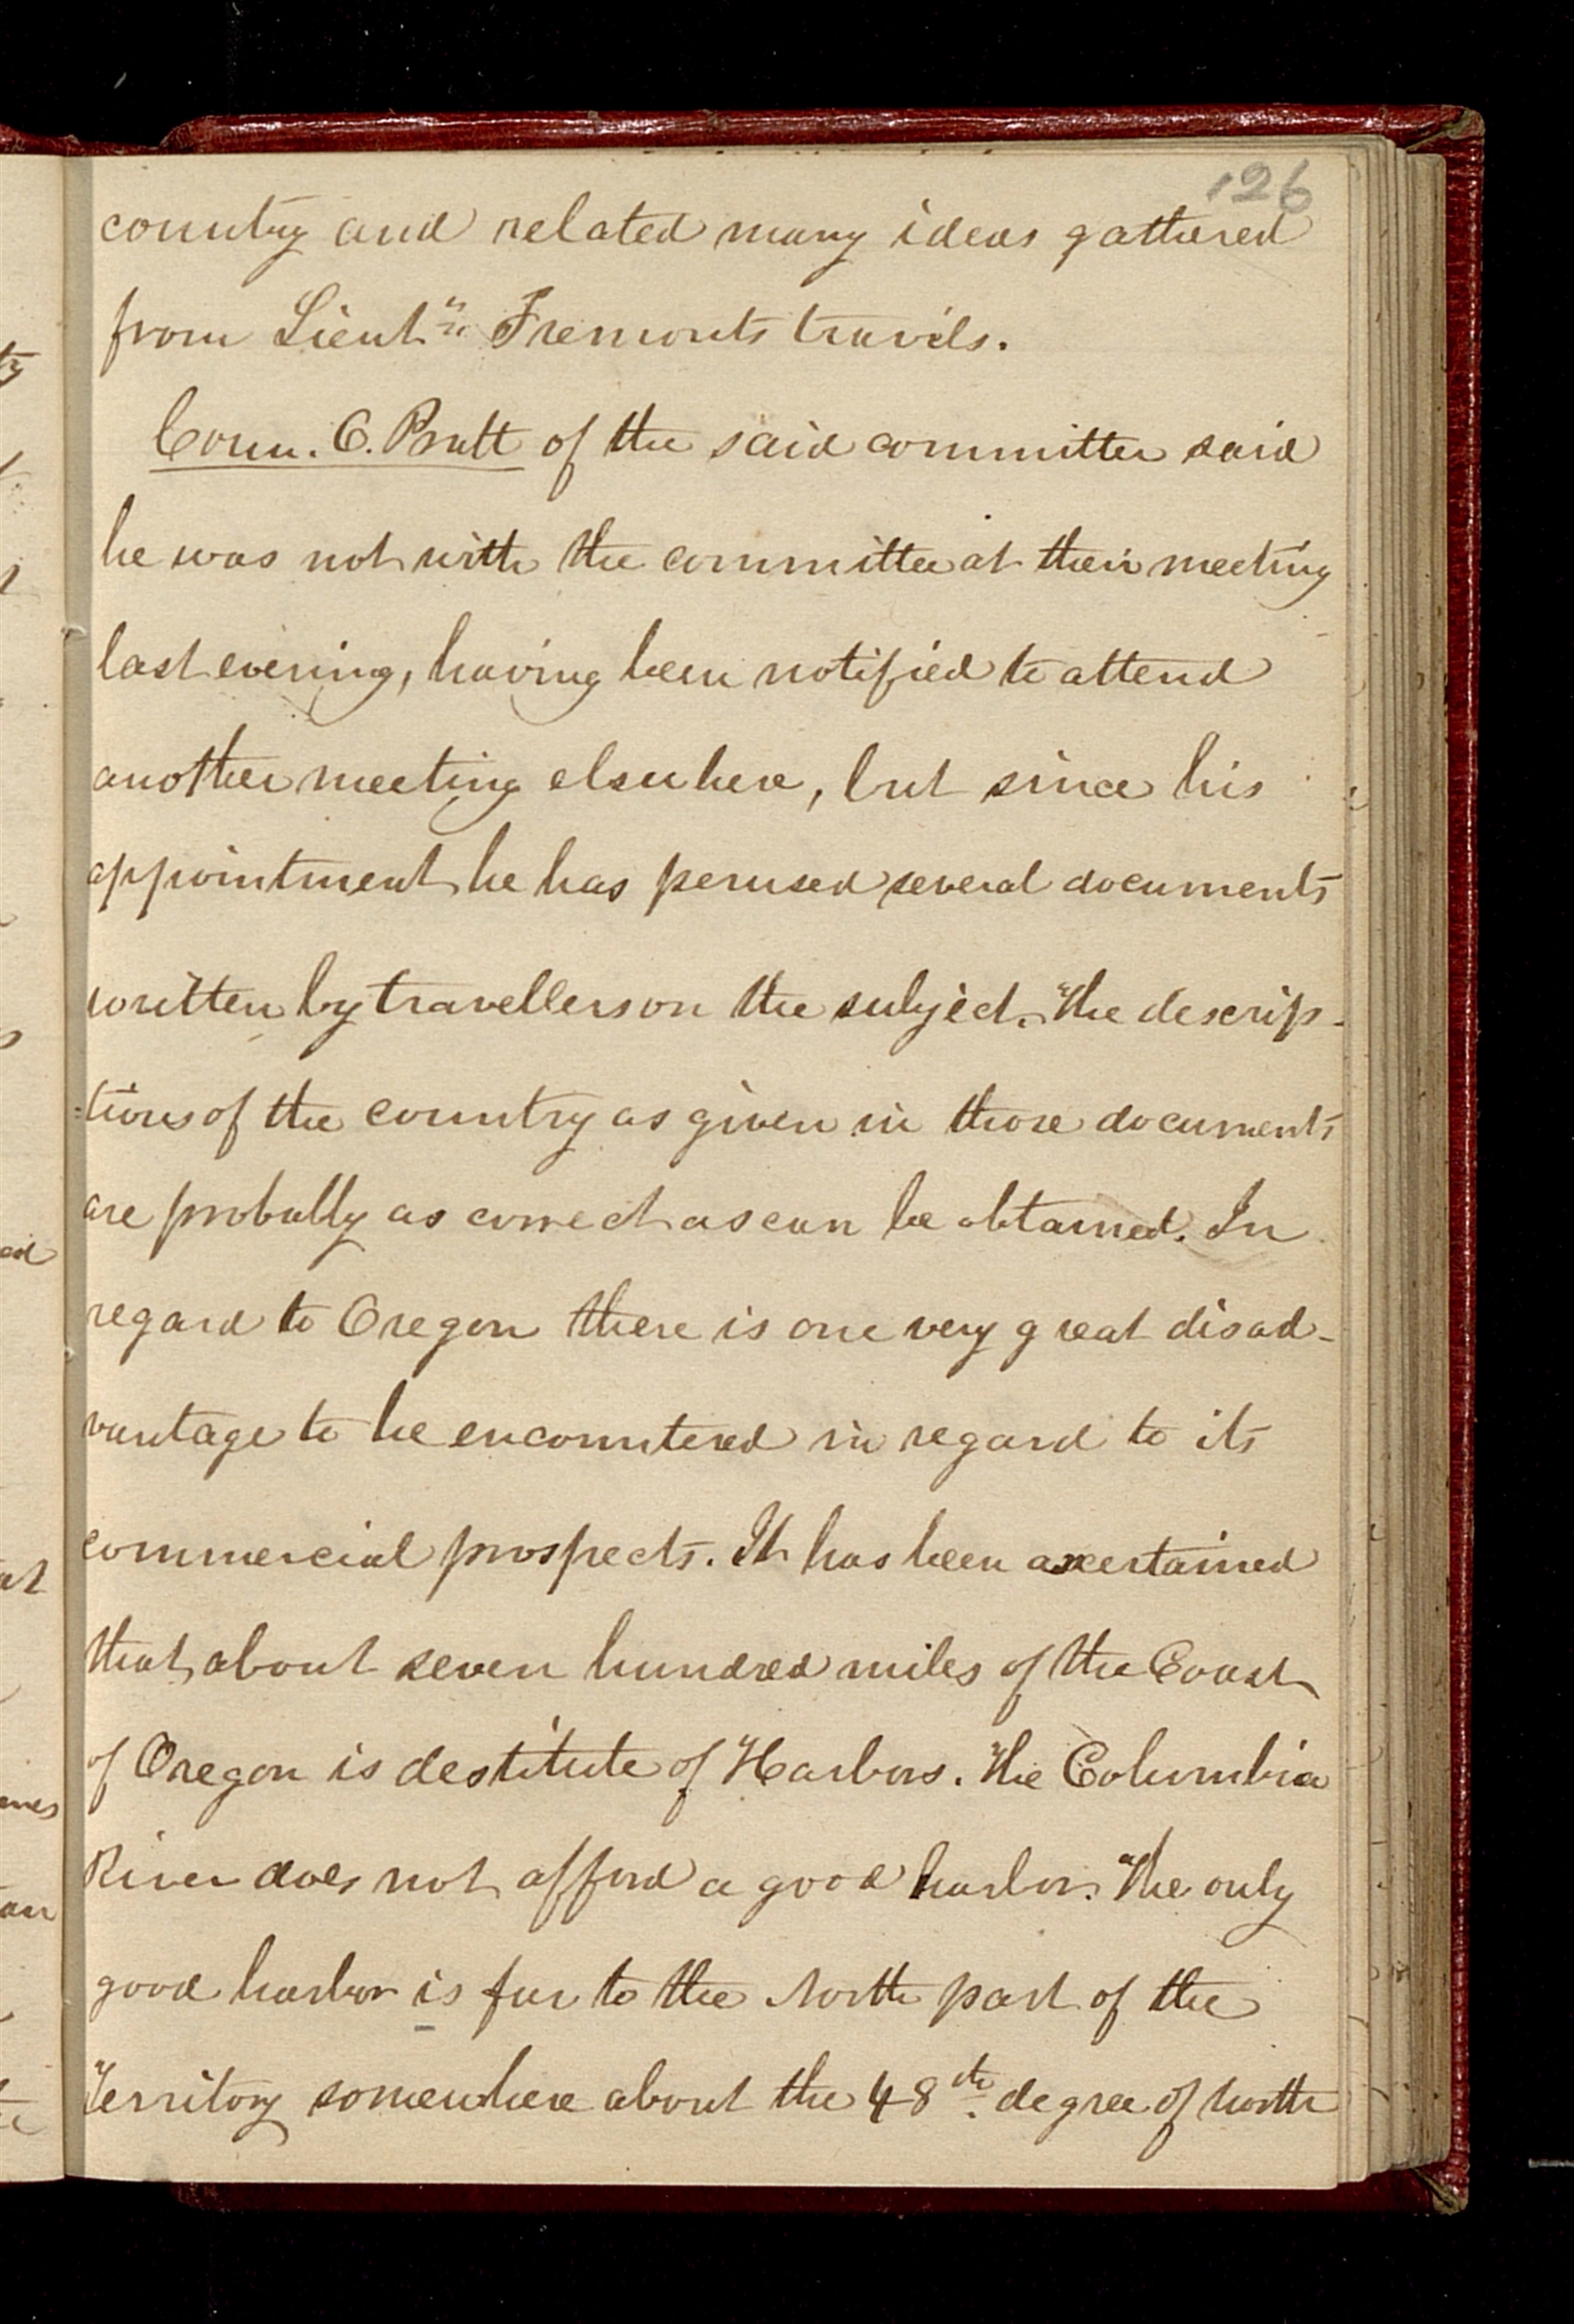 126
country and related many ideas gathered
from Lieut.n Fremonts travels.
Coun. O. Pratt of the said committee said
he was not with the committee at their meeting
last evening, having been notified to attend
another meeting elsewhere, but since his
appointment he has perused several documents
written by travellers on the subject. The descrip-
-tions of the country as given in those documents
are probally as correct as can be obtained. In
regard to Oregon there is one very great disad-
vantage to be encountered in regard to its
commercial prospects. It has been ascertained
that about seven hundred miles of the Coast
of Oregon is destitute of Harbors. The Columbia
River does not afford a good harbor. The only
good harbor is far to the North part of the
Territory somewhere about the 48th. degree of North